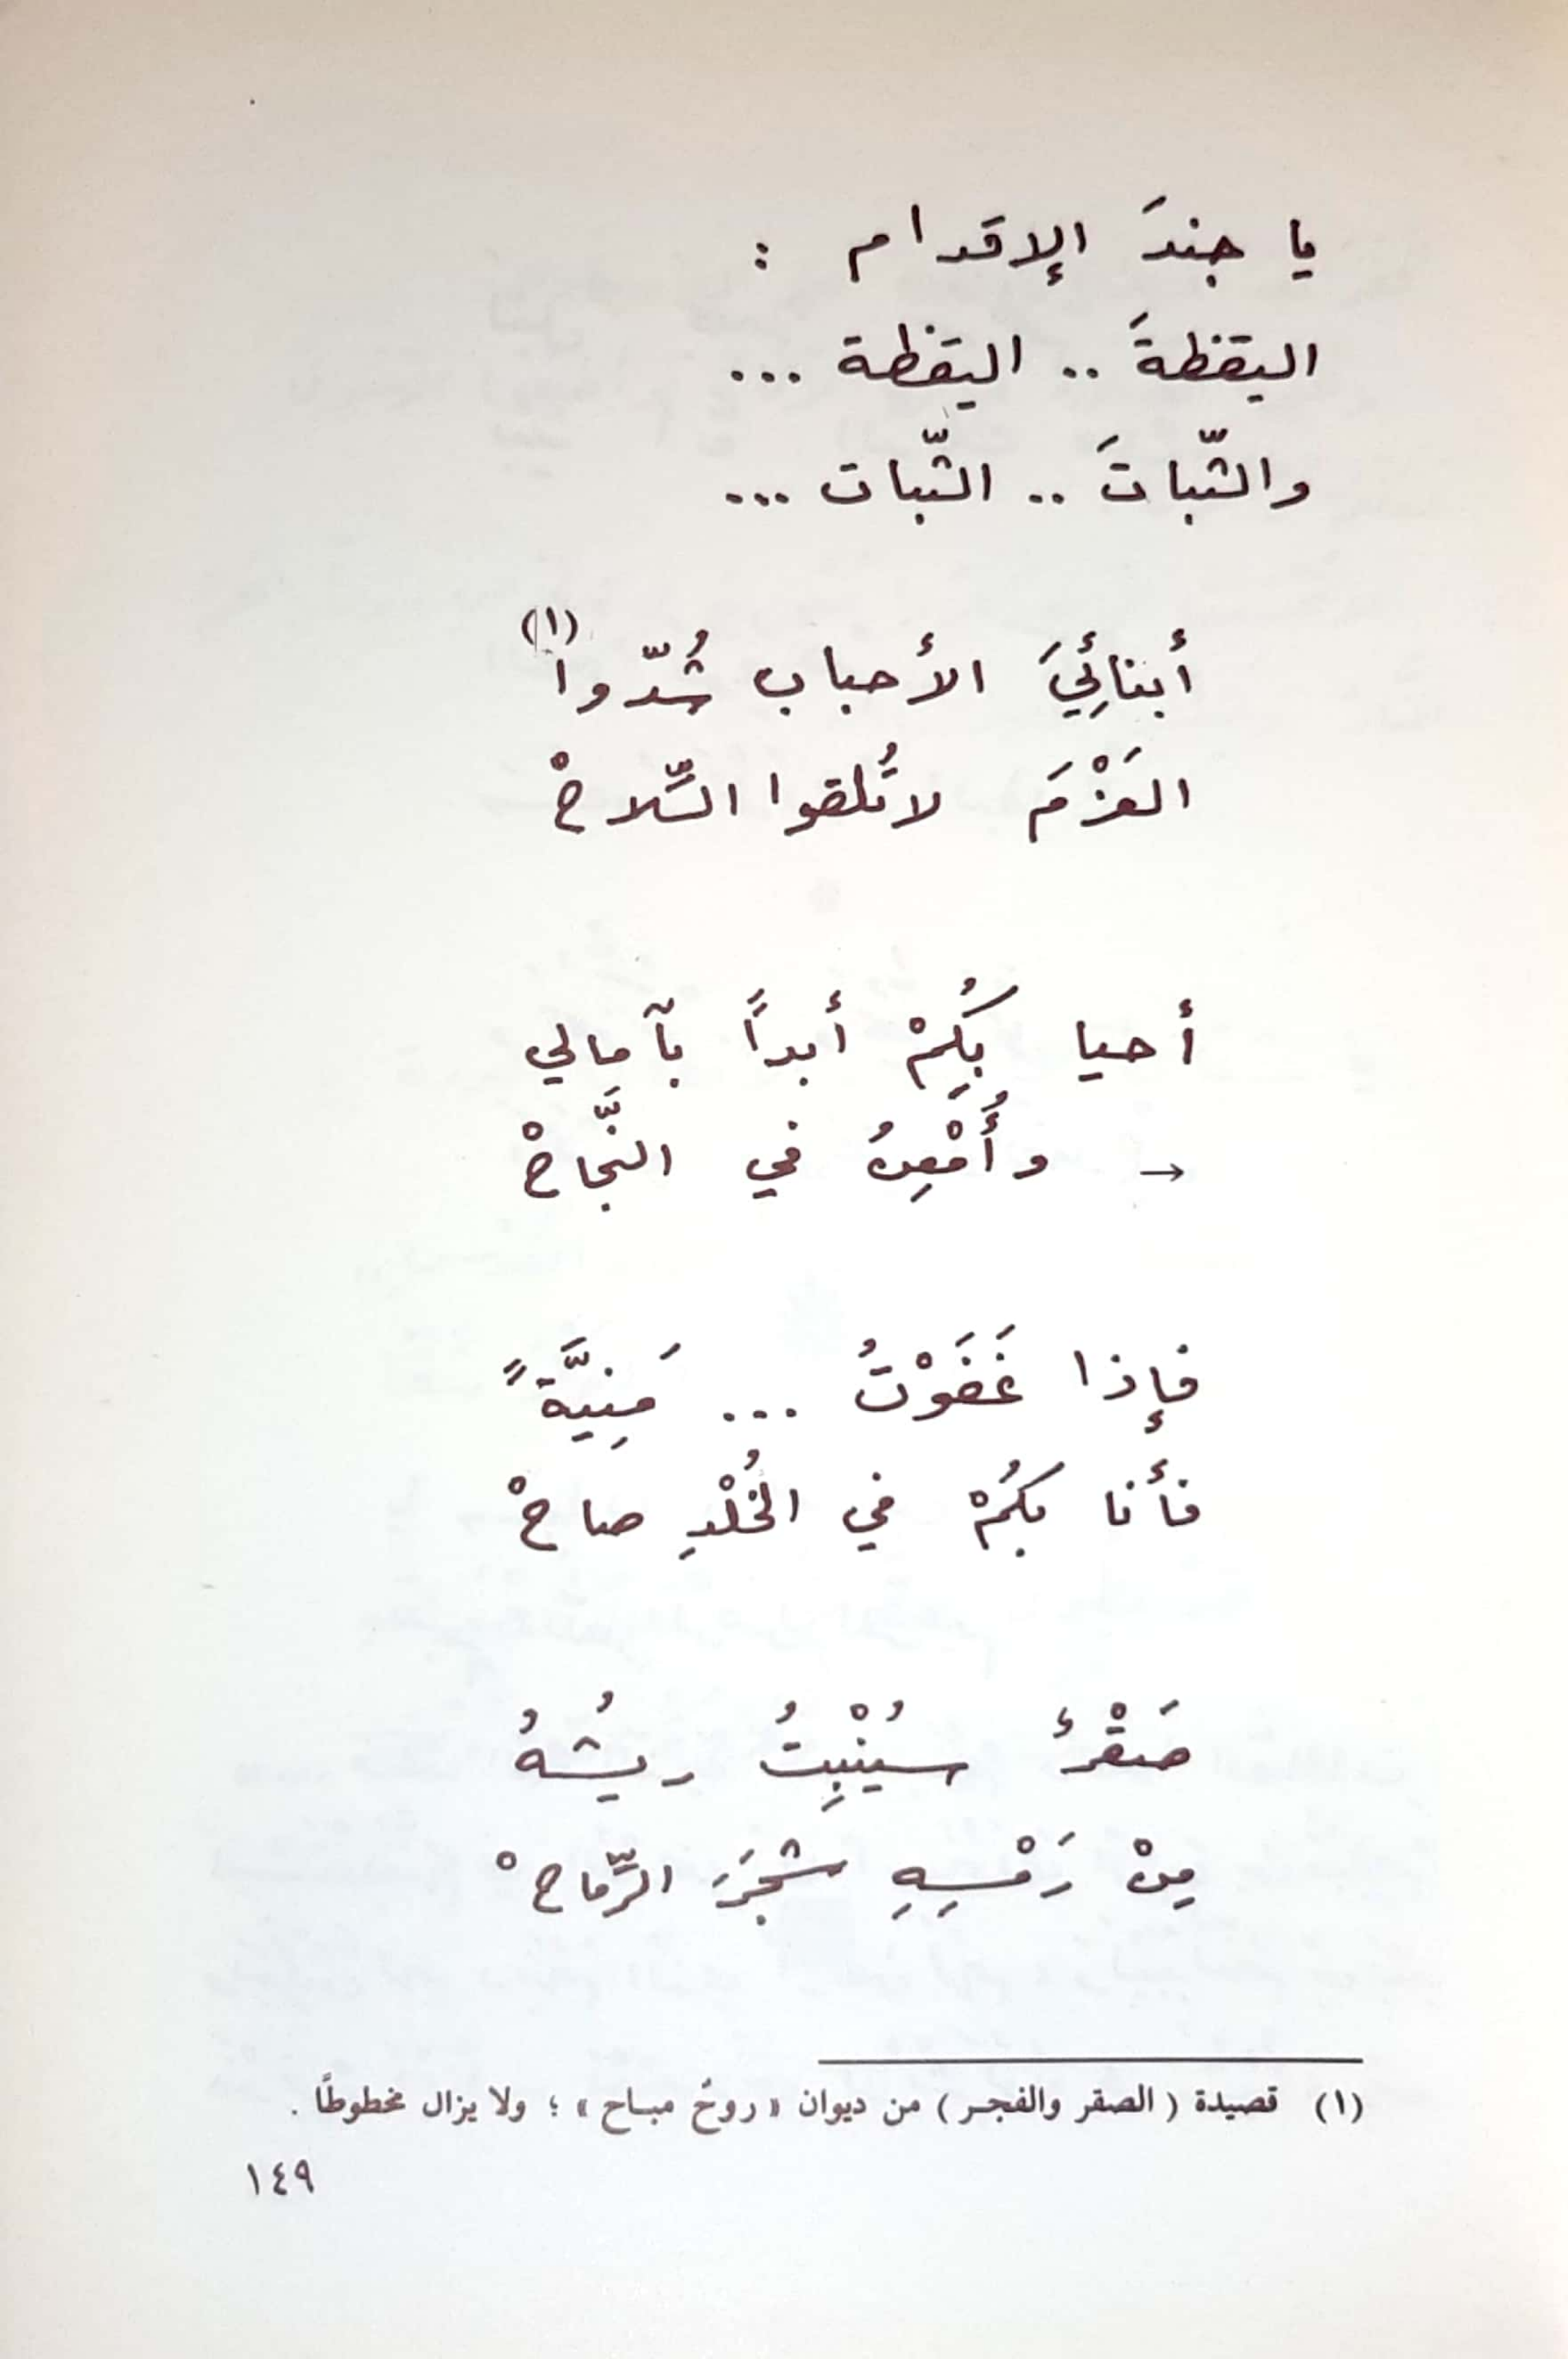 يا جندَ الإقدام :
اليقظةَ .. اليقظة ...
والثّباتَ .. الثّبات ...
أبنائِيَ الأحباب شُدّوا (١)
العَزْمَ لا تُلقوا السّلاحْ
أحيا بِكُمْ أبداً بآمالي
← وأُمْعِنُ في النَّجاحْ
فإذا غَفَوْتُ ... مَنِيَّةً
فأنا بكُمْ في الخُلْدِ صاحْ
صَقْرٌ سيُنْبِتُ ريشُهُ
مِنْ رَمْسِهِ شجَرَ الرّماحْ
(١) قصيدة ( الصقر والفجر ) من ديوان « روحٌ مباح » ؛ ولا يزال مخطوطًا .
١٤٩